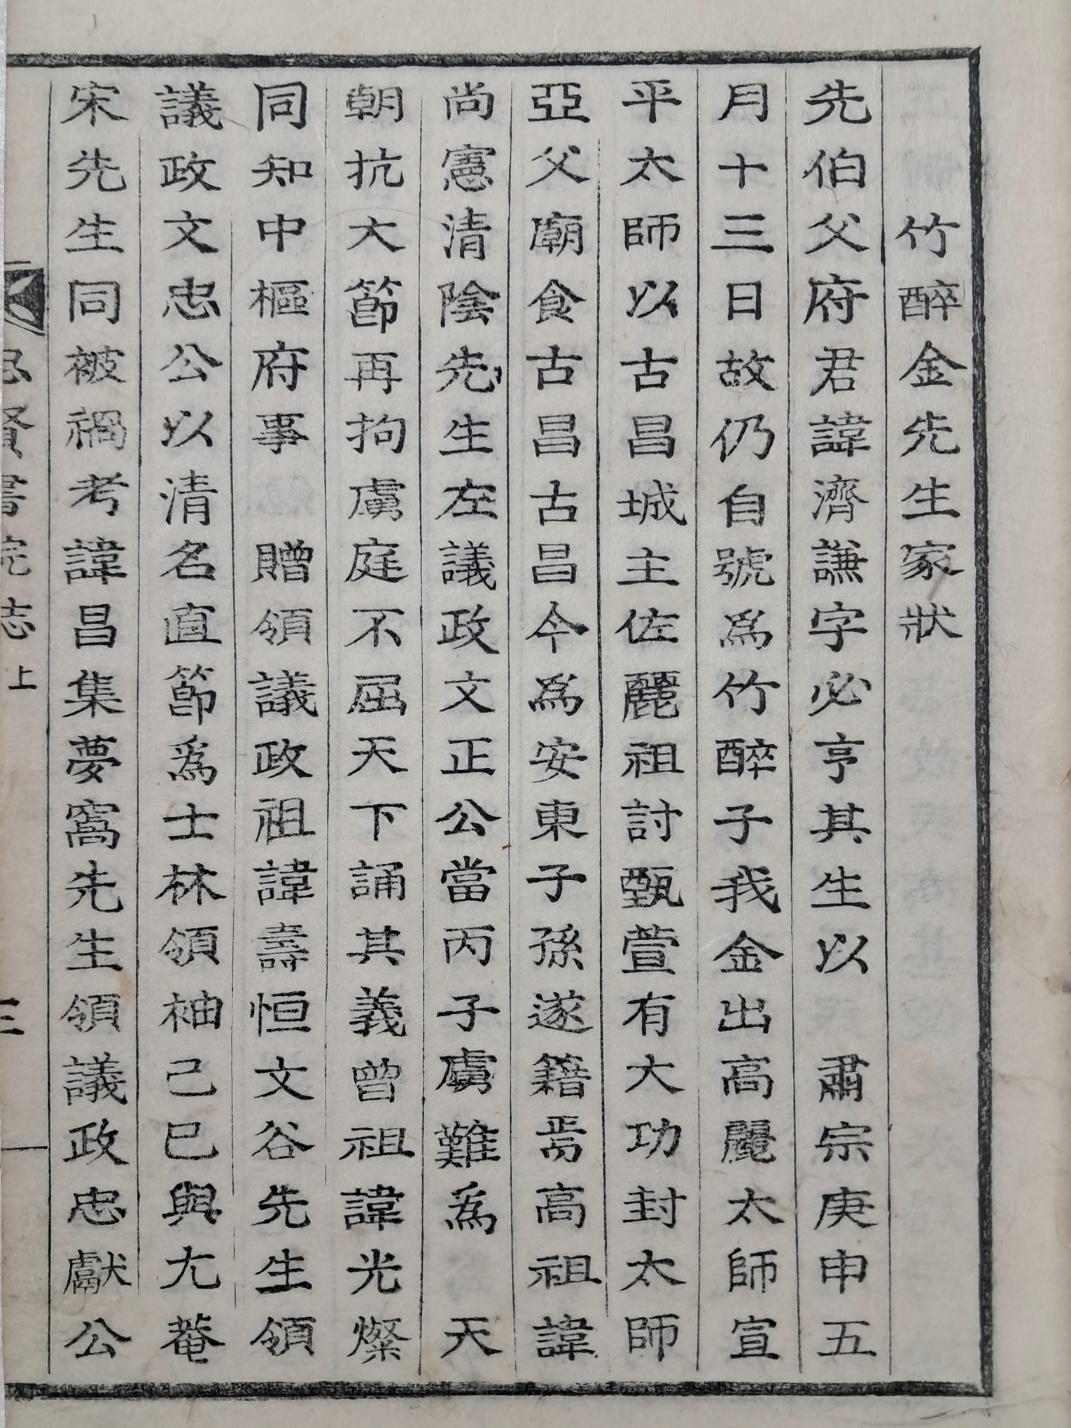 竹醉金先生家狀
先伯父府君諱濟謙字必亨其生以　肅宗庚申五
月十三日故仍自號爲竹醉子我金出高麗太師宣
平太師以古昌城主佐麗祖討甄萱有大功封太師
亞父廟食古昌古昌今爲安東子孫遂籍焉高祖諱
尚憲清陰先生左議政文正公當丙子虜難爲　天
朝抗大節再拘虜庭不屈天下誦其義曾祖諱光燦
同知中樞府事　贈領議政祖諱壽恒文谷先生領
議政文忠公以清名直節爲士林領袖己巳與尤菴
宋先生同被禍考諱昌集夢窩先生領議政忠獻公
忠賢書院志上　三